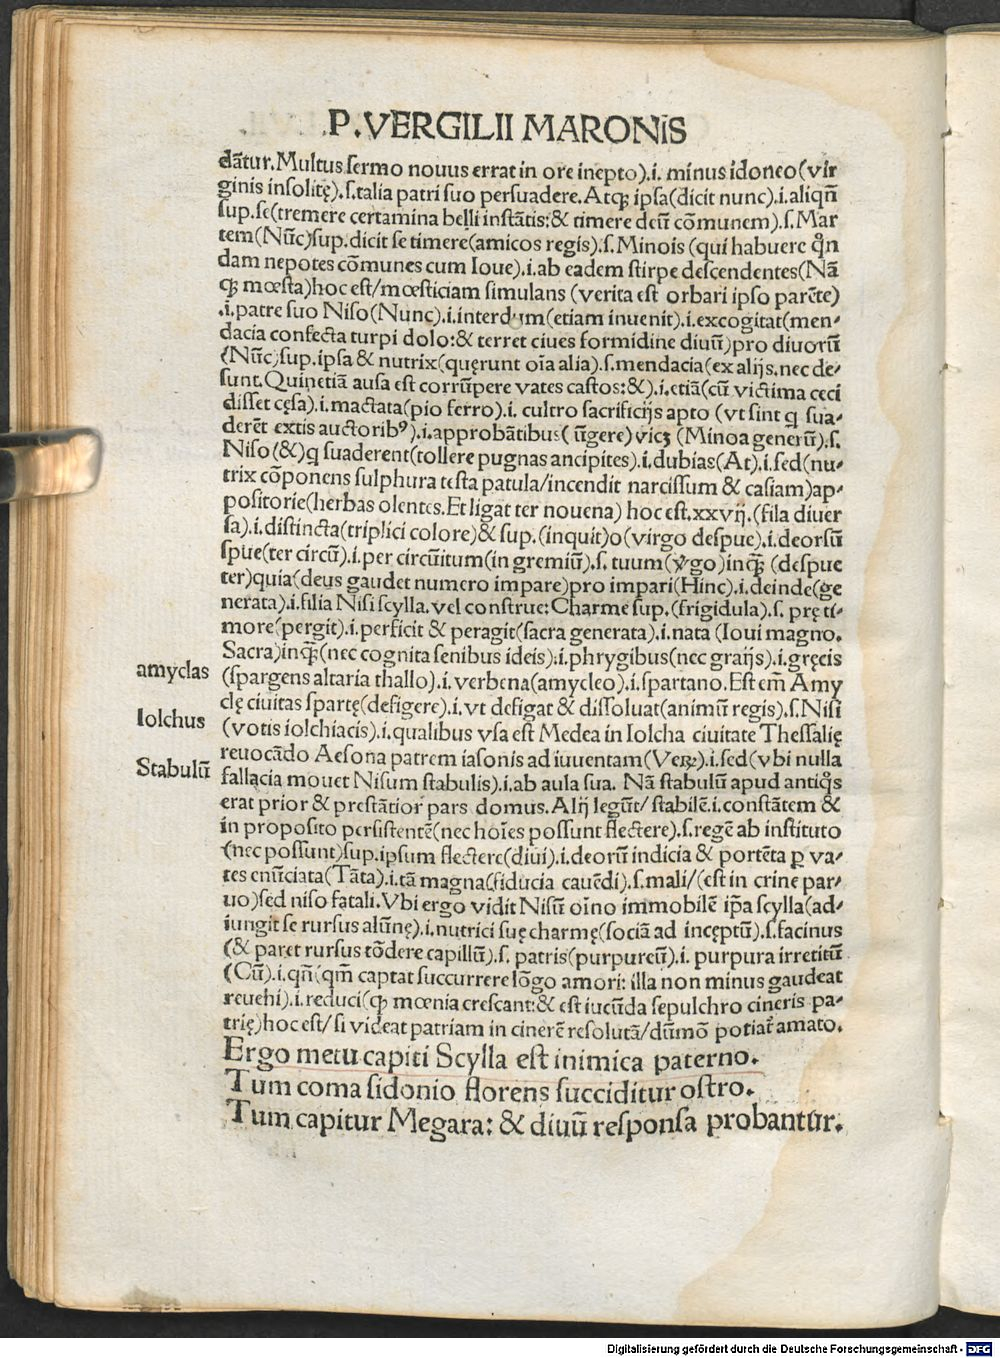 .P.VERGILII MARONIS
dātur.Multus sermo nouus errat in ore inepto).i. minus idoneo(vir
ginis insolitę).s.talia patri suo persuadere.Atqꝫ ipsa(dicit nunc).i.aliqñ
sup.se(tremere certamina belli instātis:& timere deū cōmunem).s.Mar
tem(Nūc)sup.dicit se timere(amicos regis).s.Minois (qui habuere qñ
dam nepotes cōmunes cum Ioue).i.ab eadem stirpe descendentes(Nā
qꝫ mœsta)hoc est/mœsticiam simulans (verita est orbari ipso parēte)
.i.patre suo Niso(Nunc).i.interdum(etiam inuenit).i.excogitat(men-
dacia confecta turpi dolo:& terret ciues formidine diuū)pro diuorū
(Nūc)sup.ipsa & nutrix(quęrunt oīa alia).s.mendacia(ex alijs.nec de-
sunt.Quinetiā ausa est corrūpere vates castos:&).i.etiā(cū victima ceci
disset cęsa).i.mactata(pio ferro).i. cultro sacrificijs apto (vt sint q sua-
derēt extis auctoribꝰ).i.approbātibus(ūgere)vicꝫ (Minoa generū).s.
Niso(&)q suaderent(tollere pugnas ancipites).i.dubias(At).i.sed(nu-
trix cōponens sulphura testa patula/incendit narcissum & casiam)ap-
positorie(herbas olentes.Et ligat ter nouena) hoc est.xxvij.(fila diuer
sa).i.distincta(triplici colore)& sup.(inquit)o(virgo despue).i.deorsū
spue(ter circū).i.per circuitum(in gremiū).s. tuum(v̓go)inqꝫ (despue
ter)quia(deus gaudet numero impare)pro impari(Hinc).i.deinde(ge
nerata).i.filia Nisi scylla.vel construe:Charme sup.(frigidula).s. pręti-
more(pergit).i.perficit & peragit(sacra generata).i.nata (Ioui magno.
Sacra)inqꝫ(nec cognita senibus ideis).i.phrygibus(nec graijs).i.gręcis
amyclas (spargens altaria thallo).i.verbena(amycleo).i.spartano.Est em̄ Amy
clę ciuitas spartę(defigere).i.vt defigat & dissoluat(animū regis).s.Nisi
Iolchus (votis iolchiacis).i.qualibus vsa est Medea in Iolcha ciuitate Thessalię
reuocādo Aesona patrem iasonis ad iuuentam(Veꝝ).i.sed(vbi nulla
Stabulū fallacia mouet Nisum stabulis).i.ab aula sua. Nā stabulū apud antiqs
erat prior & prestātior pars domus.Alij legūt/stabilē.i.constātem &
in proposito persistentē(nec hoīes possunt flectere).s.regē ab instituto
(nec possunt)sup.ipsum flectere(diui).i.deorū indicia & portēta ꝑ va-
tes enūciata(Tāta).i.tā magna(fiducia cauēdi).s.mali/(est in crine par-
uo)sed niso fatali.Vbi ergo vidit Nisū oīno immobilē ip̄a scylla(ad-
iungit se rursus alūnę).i.nutrici suę charmę(sociā ad incęptū).s.facinus
(& paret rursus tōdere capillū).s. patris(purpureū).i. purpura irretitū
(Cū).i.qñ(qm̄ captat succurrere lōgo amori: illa non minus gaudeat
reuehi).i.reduci(qꝫ mœnia crescant:& est iucūda sepulchro cineris pa-
trię)hoc est/si videat patriam in cinerē resolutā/dūmō potiat̄ amato.
Ergo metu capiti Scylla est inimica paterno.
Tum coma sidonio florens succiditur ostro.
Tum capitur Megara: & diuū responsa probantur.
Digitalisierung gefördert durch die Deutsche Forschungsgemeinschaft - DFG